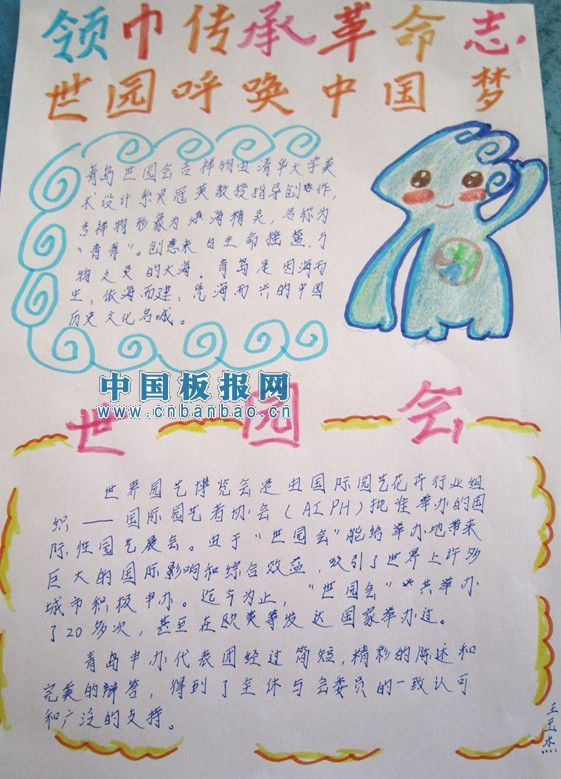 领巾传承革命志
世园呼唤中国梦
青岛世园会吉祥物由清华大学美
术设计系吴冠英教授指导创作,
吉祥物形象为海精灵,名称为
“青青”。创意来自生命摇篮,万
物之灵的大海。青岛是因海而
生,依海而建,凭海而兴的中国
历史文化名城。
中国板报网
www.cnbanbao.cn
世园会
世界园艺博览会是由国际园艺花卉行业组
织——国际园艺者协会(AIPH)批准举办的国
际性园艺展会。由于“世园会”能给举办地带来
巨大的国际影响和综合效益,吸引了世界上许多
城市积极申办。迄今为止,“世园会”共举办
了20多次,甚至在欧美等发达国家举办过。
青岛申办代表团经过简短,精彩的陈述和
完美的辩答,得到了主体与会委员的一致认可
和广泛的支持。
王玉杰